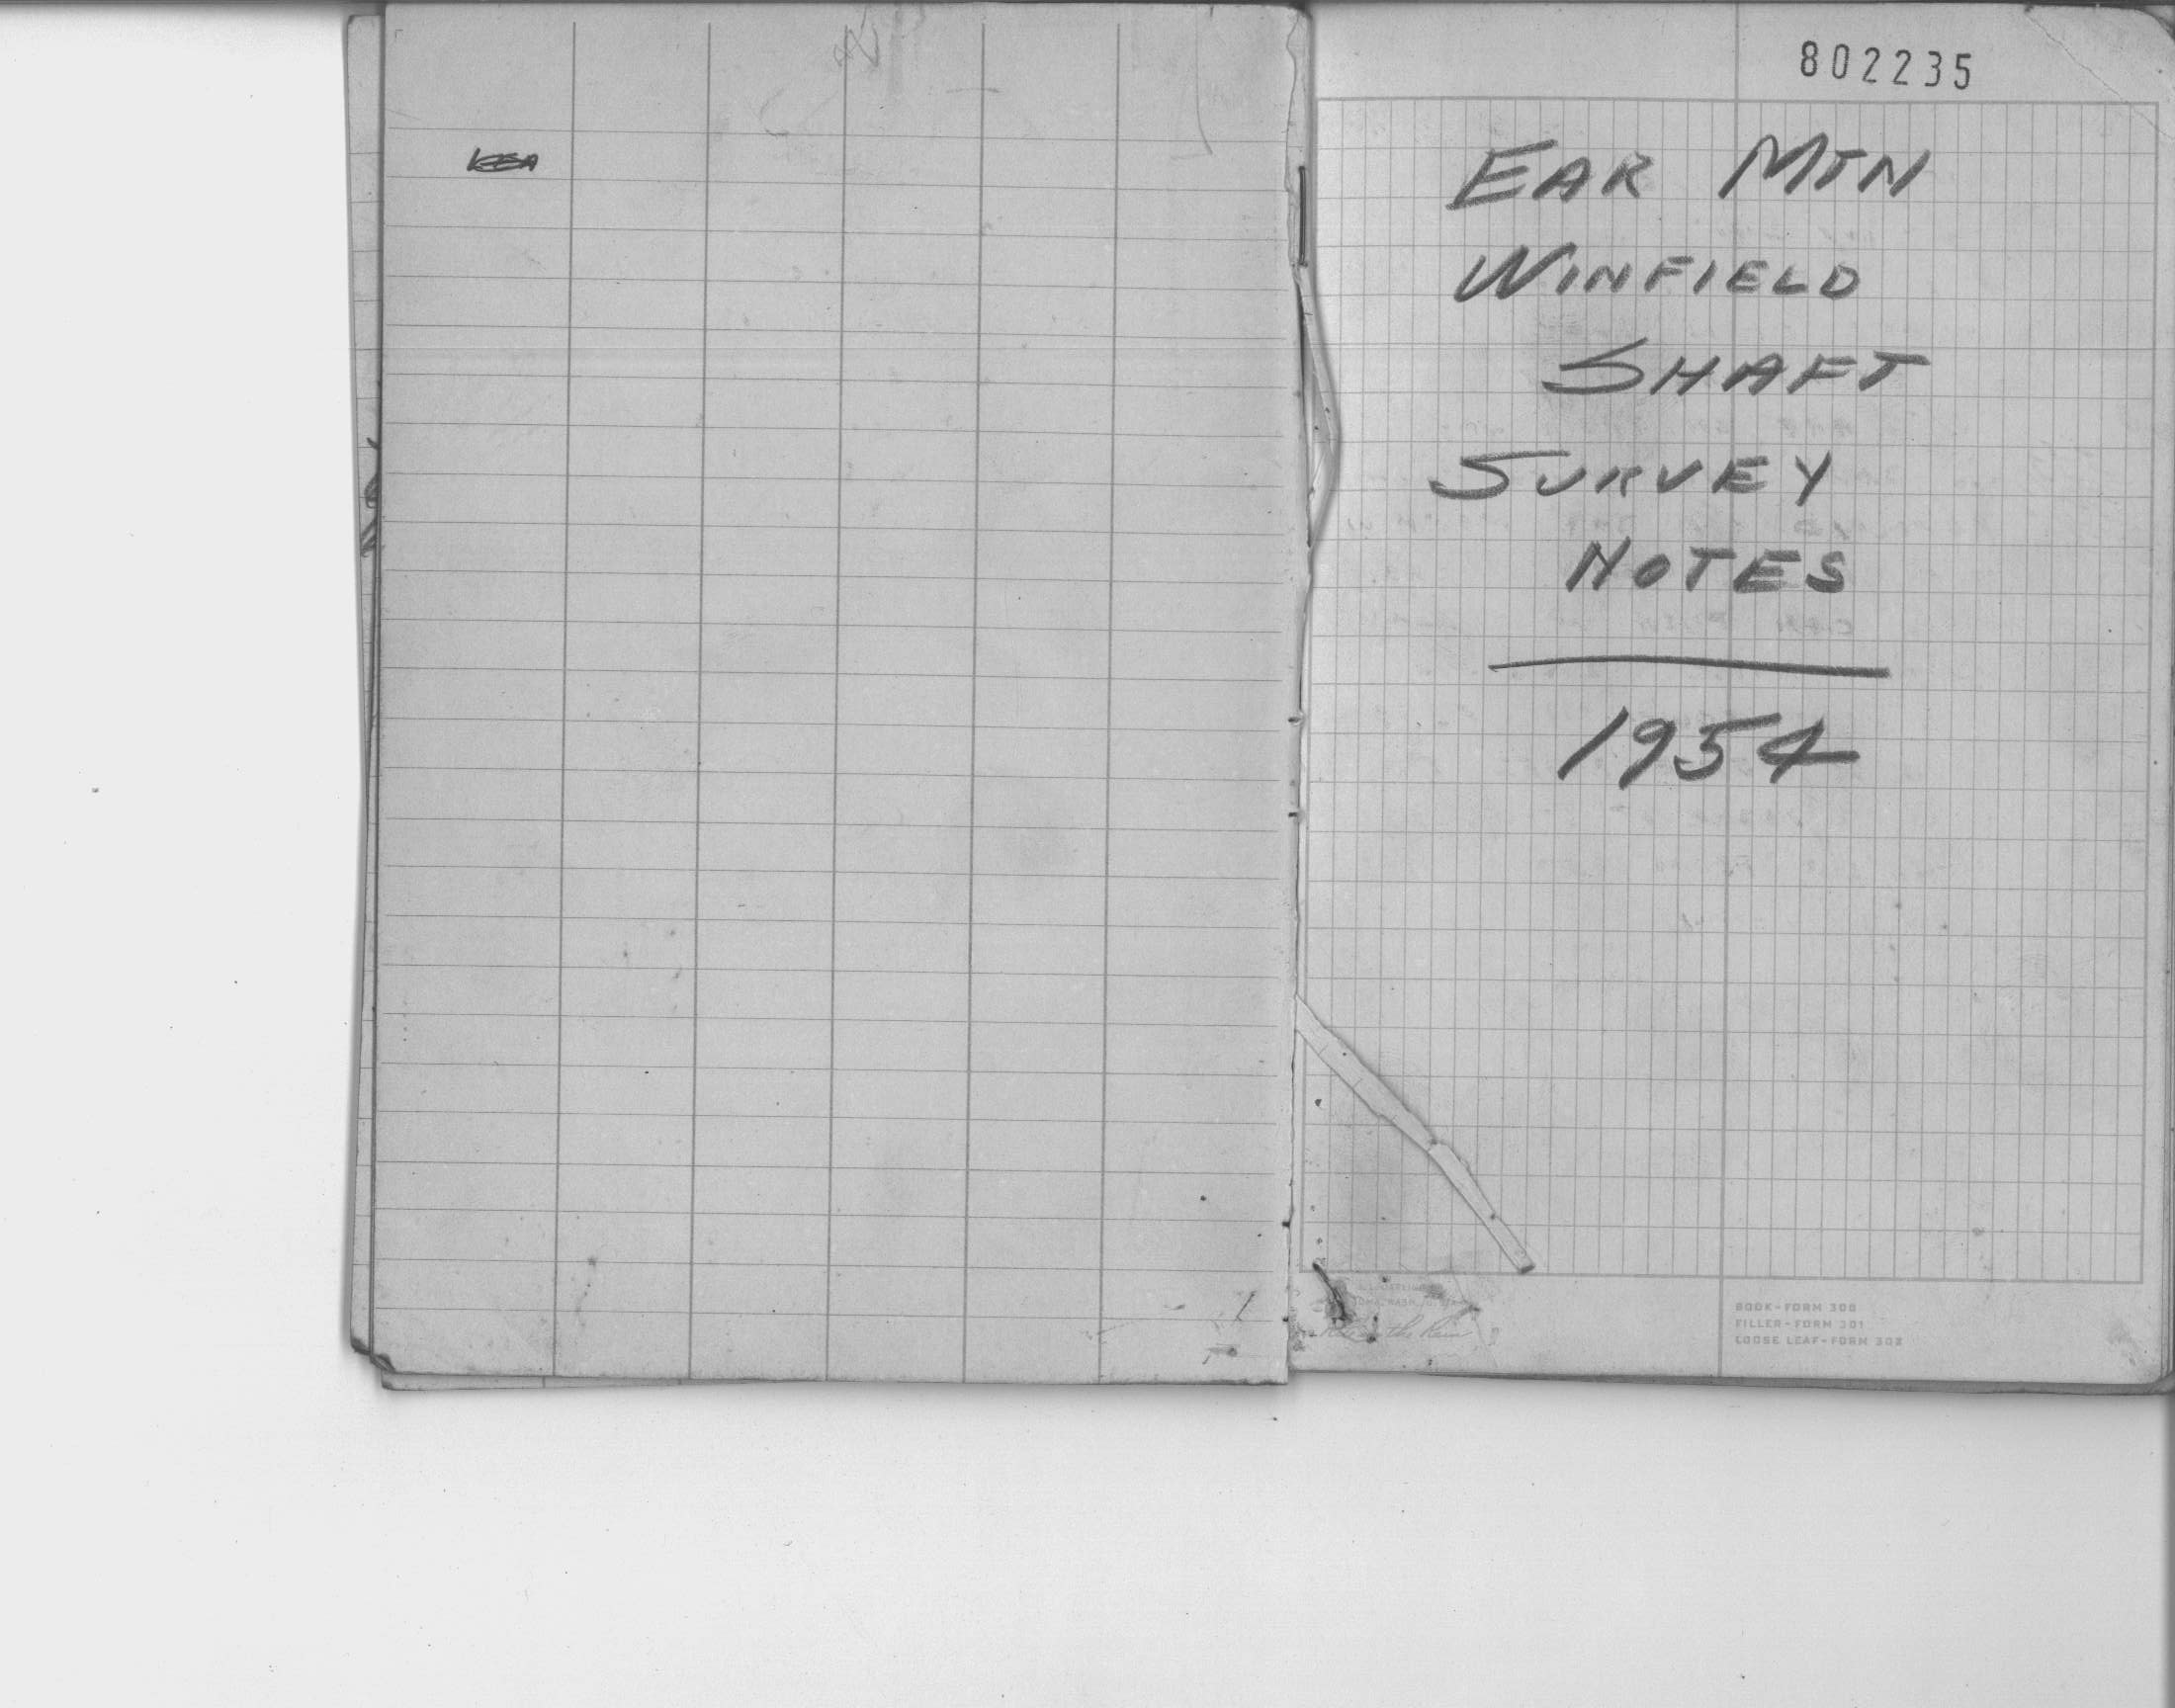 802235
EAR MTN
WINFIELD
SHAFT
SURVEY
NOTES
1954
BOOK-FORM 300
FILLER-FORM 301
LOOSE LEAF-FORM 302